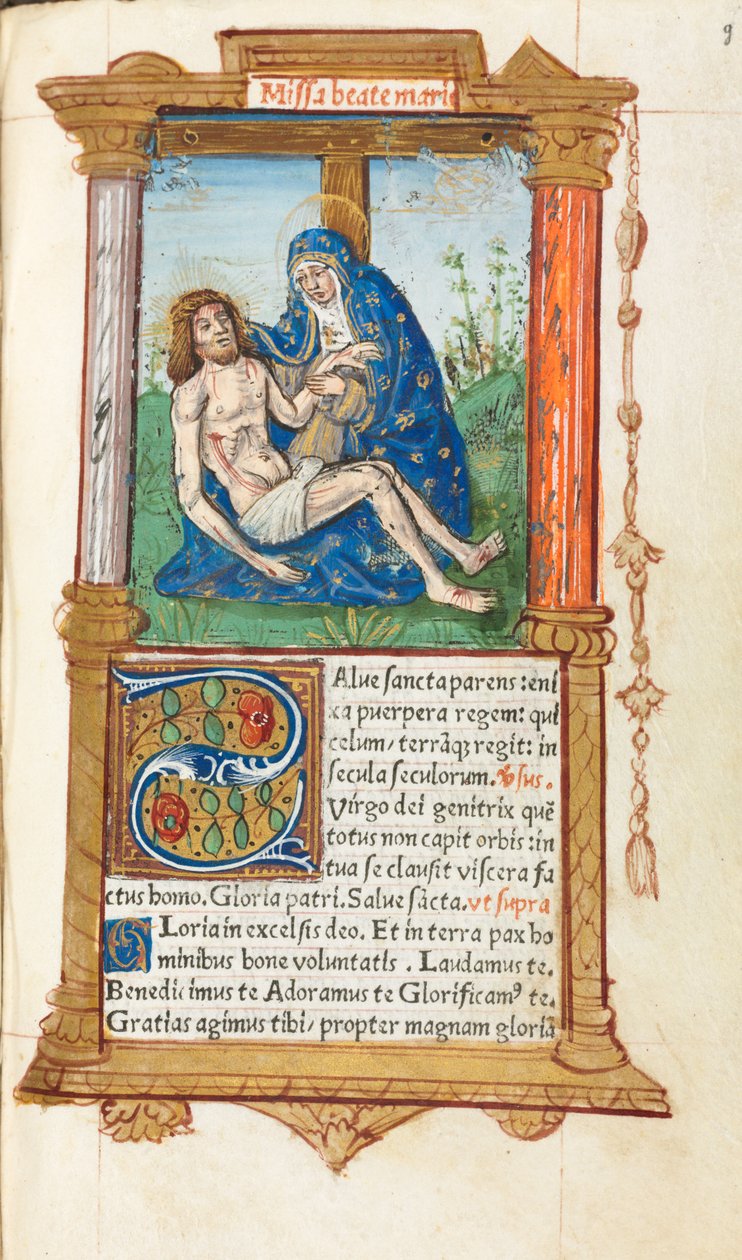 9
Missa beate marie
SAlue sancta parens : eni
xa puerpera regem: qui
celum/ terrãqꝫ regit: in
secula seculorum. ℣sus.
Virgo dei genitrix quẽ
totus non capit orbis :in
tua se clausit viscera fa
ctus homo. Gloria patri. Salue sãcta. vt supra
GLoria in excelsis deo. Et in terra pax ho
minibus bone voluntatis . Laudamus te.
Benedicimus te Adoramus te Glorificamꝰ te.
Gratias agimus tibi/ propter magnam gloriã